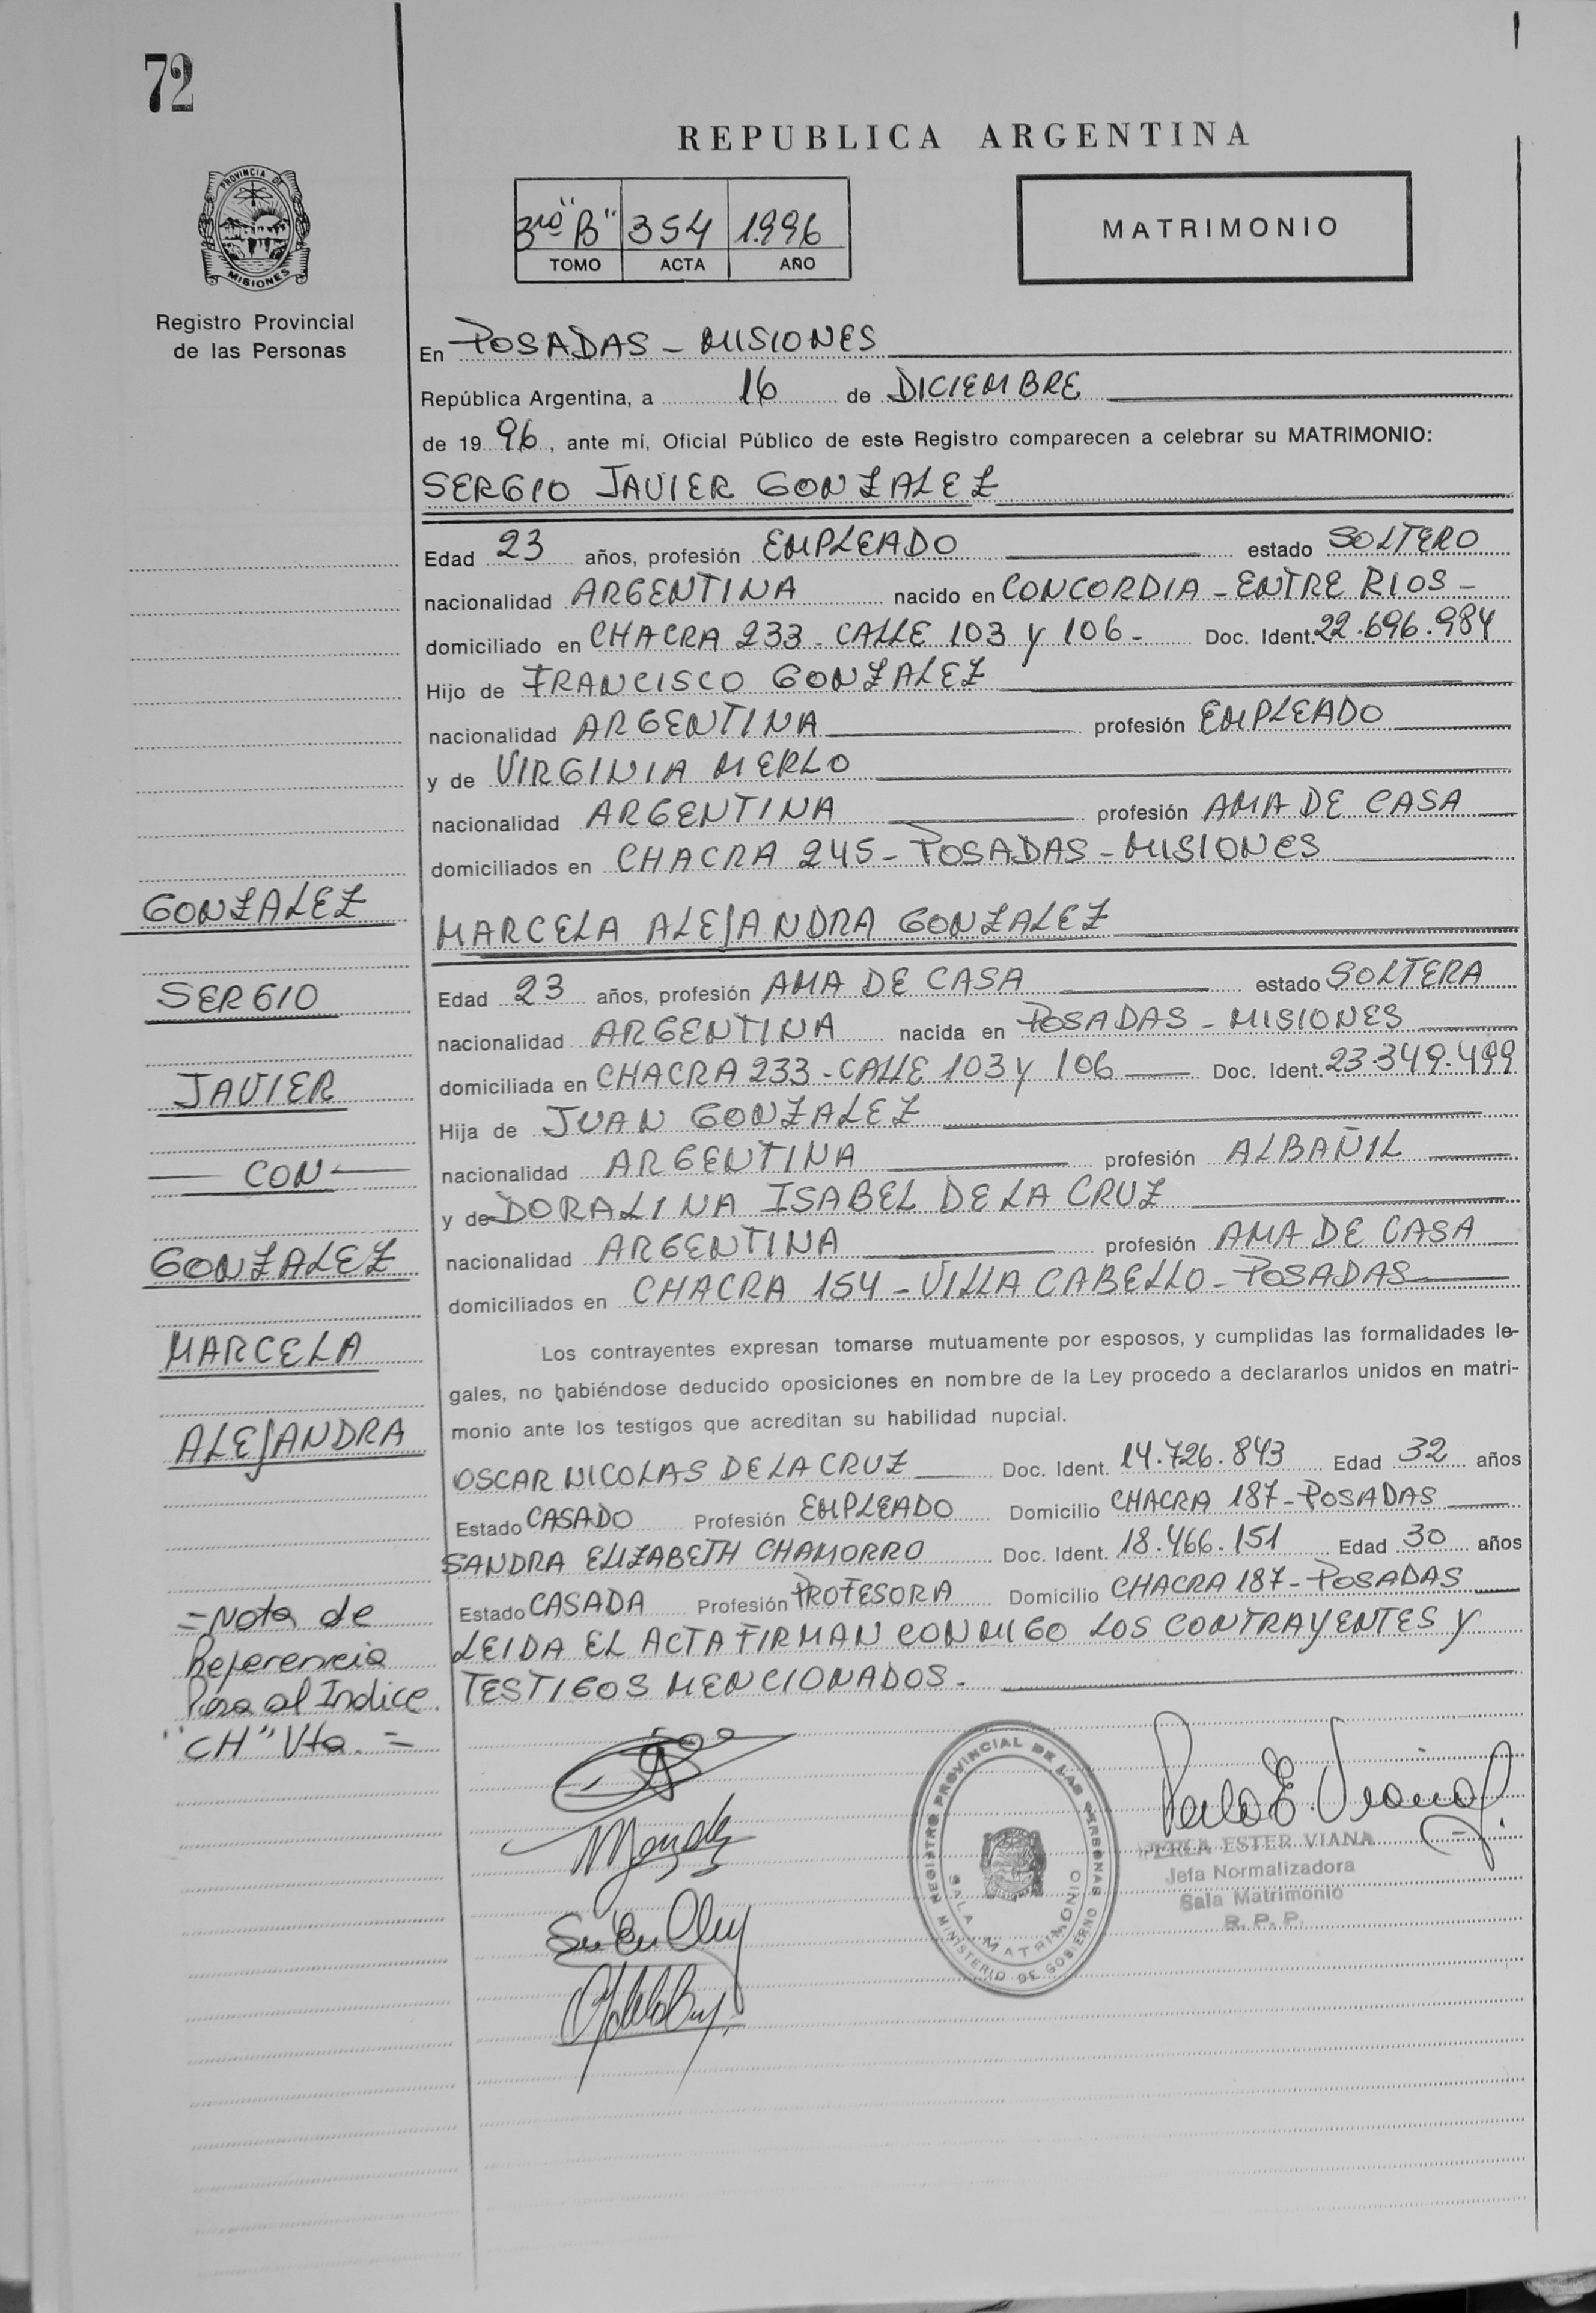 72
REPUBLICA ARGENTINA
PROVINCIA DE
MISIONES
Registro Provincial
de las Personas
3ro "B" 354 1.996
TOMO ACTA AÑO
MATRIMONIO
En POSADAS - MISIONES
República Argentina, a 16 de DICIEMBRE
de 19 96, ante mí, Oficial Público de este Registro comparecen a celebrar su MATRIMONIO:
SERGIO JAVIER GONZALEZ
Edad 23 años, profesión EMPLEADO estado SOLTERO
nacionalidad ARGENTINA nacido en CONCORDIA - ENTRE RIOS -
domiciliado en CHACRA 233 - CALLE 103 y 106 - Doc. Ident. 22.696.984
Hijo de FRANCISCO GONZALEZ
nacionalidad ARGENTINA profesión EMPLEADO
y de VIRGINIA MERLO
nacionalidad ARGENTINA profesión AMA DE CASA
domiciliados en CHACRA 245 - POSADAS - MISIONES
MARCELA ALEJANDRA GONZALEZ
Edad 23 años, profesión AMA DE CASA estado SOLTERA
nacionalidad ARGENTINA nacida en POSADAS - MISIONES
domiciliada en CHACRA 233 - CALLE 103 y 106 Doc. Ident. 23.349.499
Hija de JUAN GONZALEZ
nacionalidad ARGENTINA profesión ALBAÑIL
y de DORALINA ISABEL DE LA CRUZ
nacionalidad ARGENTINA profesión AMA DE CASA
domiciliados en CHACRA 154 - VILLA CABELLO - POSADAS
Los contrayentes expresan tomarse mutuamente por esposos, y cumplidas las formalidades le-
gales, no habiéndose deducido oposiciones en nombre de la Ley procedo a declararlos unidos en matri-
monio ante los testigos que acreditan su habilidad nupcial.
OSCAR NICOLAS DE LA CRUZ Doc. Ident. 14.726.843 Edad 32 años
Estado CASADO Profesión EMPLEADO Domicilio CHACRA 187 - POSADAS
SANDRA ELIZABETH CHAMORRO Doc. Ident. 18.466.151 Edad 30 años
Estado CASADA Profesión PROFESORA Domicilio CHACRA 187 - POSADAS
LEIDA EL ACTA FIRMAN CONMIGO LOS CONTRAYENTES Y
TESTIGOS MENCIONADOS.
GONZALEZ
SERGIO
JAVIER
CON
GONZALEZ
MARCELA
ALEJANDRA
= Nota de
Referencia
Para al Indice
"CH" Vta. =
REGISTRO PROVINCIAL DE LAS PERSONAS
SALA MATRIMONIO
MINISTERIO DE GOBIERNO
Perla E. Viana
PERLA ESTER VIANA
Jefa Normalizadora
Sala Matrimonio
R. P. P.